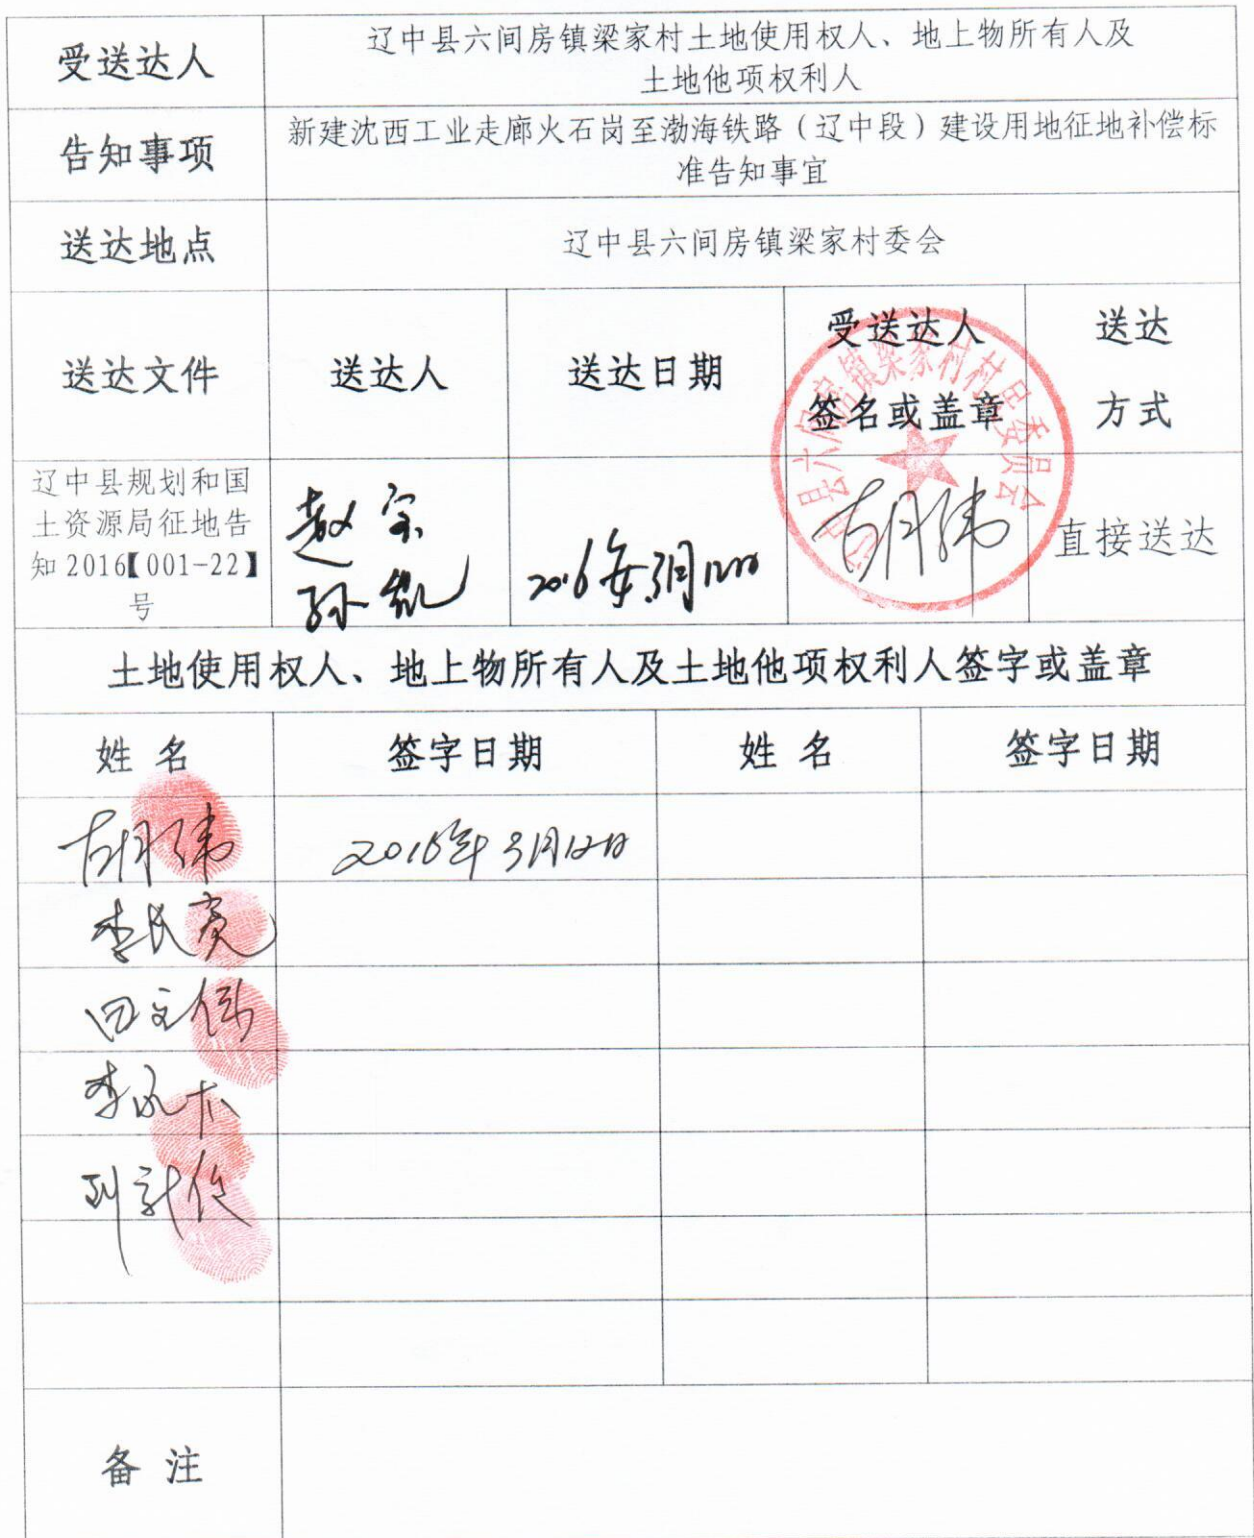 受送达人
辽中县六间房镇梁家村土地使用权人、地上物所有人及
土地他项权利人
告知事项
新建沈西工业走廊火石岗至渤海铁路（辽中段）建设用地征地补偿标
准告知事宜
送达地点
辽中县六间房镇梁家村委会
送达文件
送达人
送达日期
受送达人
签名或盖章
送达
方式
辽中县规划和国
土资源局征地告
知2016【001-22】
号
赵宗
孙凯
2016年3月12日
县六间房镇梁家村村民委员会
胡纬
直接送达
土地使用权人、地上物所有人及土地他项权利人签字或盖章
姓 名
签字日期
姓 名
签字日期
胡纬
2016年3月12日
李长亮
田文
李
刘
备 注